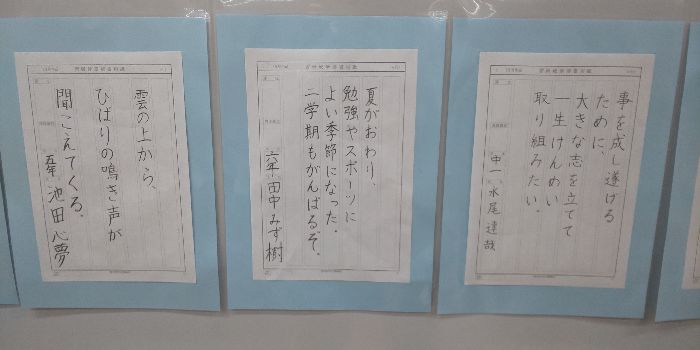 雲の上から、
ひばりの鳴き声が
聞こえてくる。
五年 池田心夢
夏がおわり、
勉強やスポーツに
よい季節になった。
二学期もがんばるぞ。
六年 田中みず樹
事を成し遂げる
ために、
大きな志を立てて
一生けんめい
取り組みたい。
中一 水尾達哉